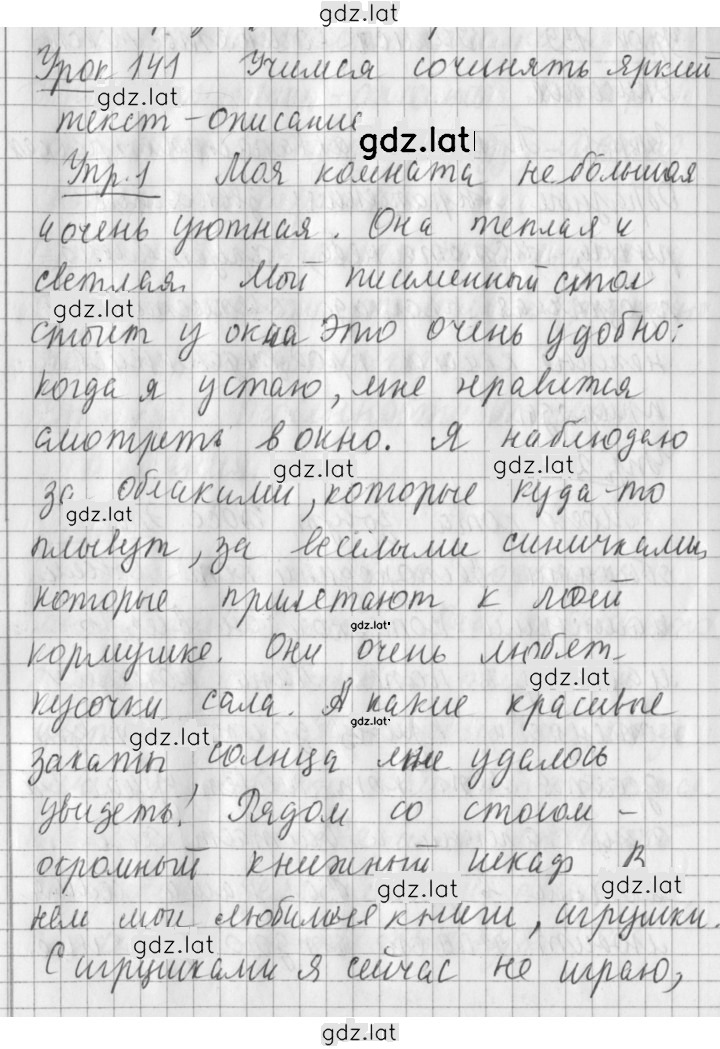 gdz.lat
Урок 141 Учимся сочинять яркий
gdz.lat
текст-описание
gdz.lat
Упр.1 Моя комната небольшая
и очень уютная. Она теплая и
светлая. Мой письменный стол
gdz.lat
стоит у окна Это очень удобно:
когда я устаю, мне нравится
смотреть в окно. Я наблюдаю
gdz.lat gdz.lat
за облаками, которые куда-то
gdz.lat
плывут, за весёлыми синичками,
которые прилетают к моей
gdz.lat
кормушке. Они очень любят
gdz.lat
кусочки сала. А какие красивые
gdz.lat
gdz.lat
закаты солнца мне удалось
увидеть! Рядом со столом –
огромный книжный шкаф В
gdz.lat gdz.lat
нем мои любимые книги, игрушки.
gdz.lat
С игрушками я сейчас не играю,
gdz.lat